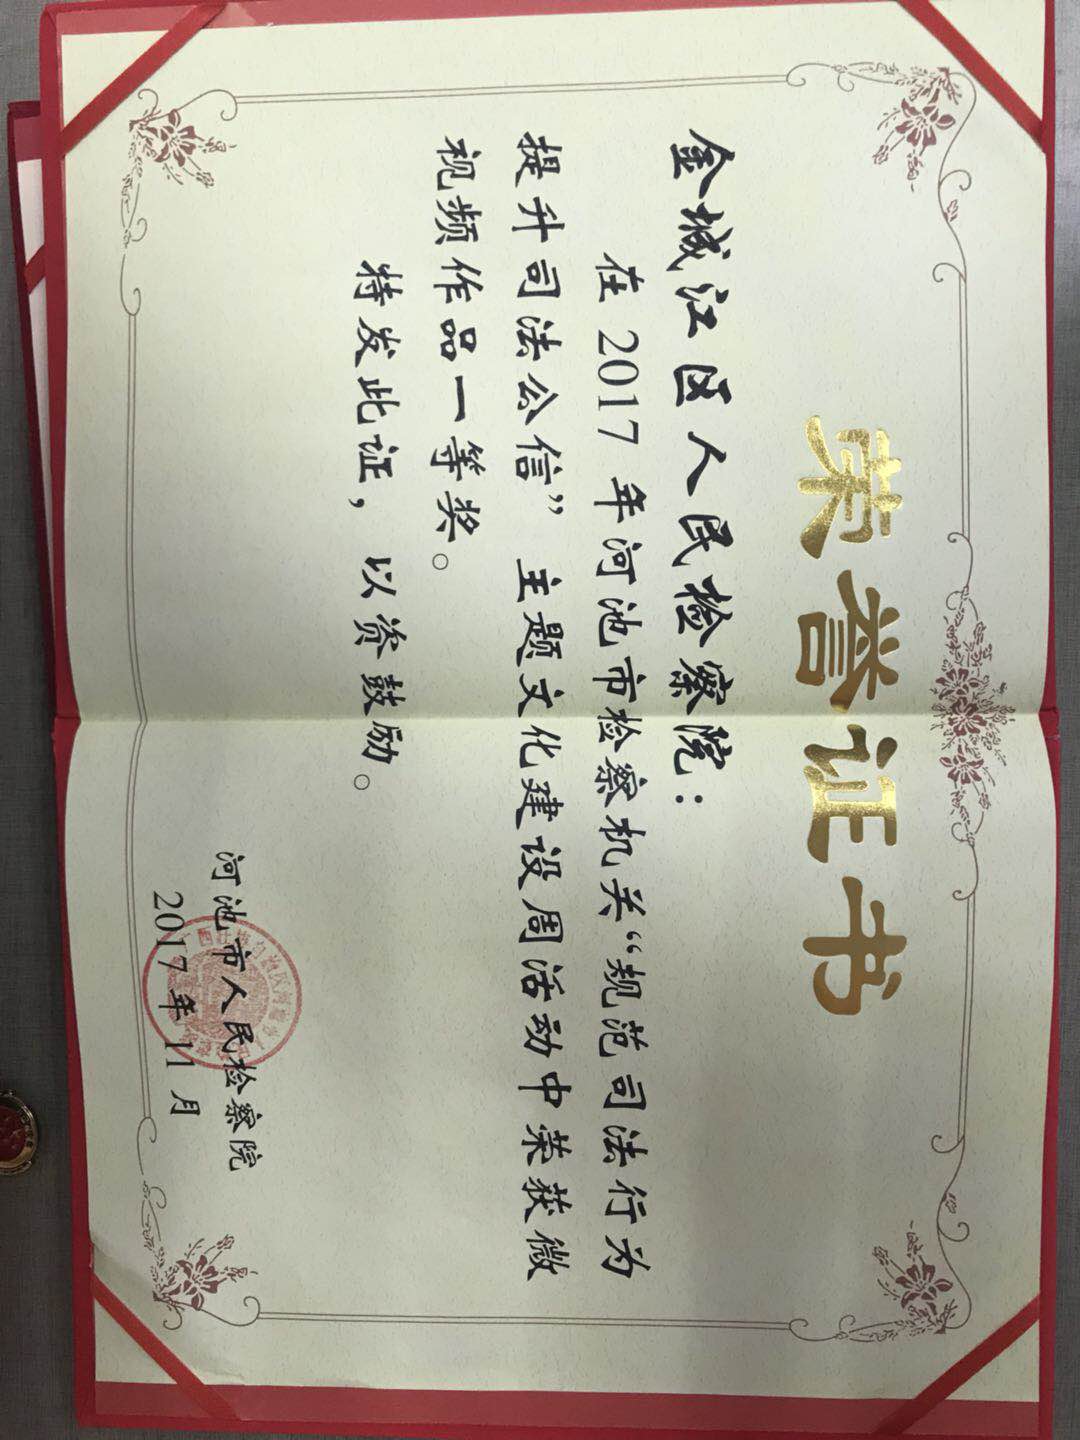 荣誉证书
金城江区人民检察院：
在2017年河池市检察机关“规范司法行为
提升司法公信”主题文化建设周活动中荣获微
视频作品一等奖。
特发此证，以资鼓励。
河池市人民检察院
2017年11月